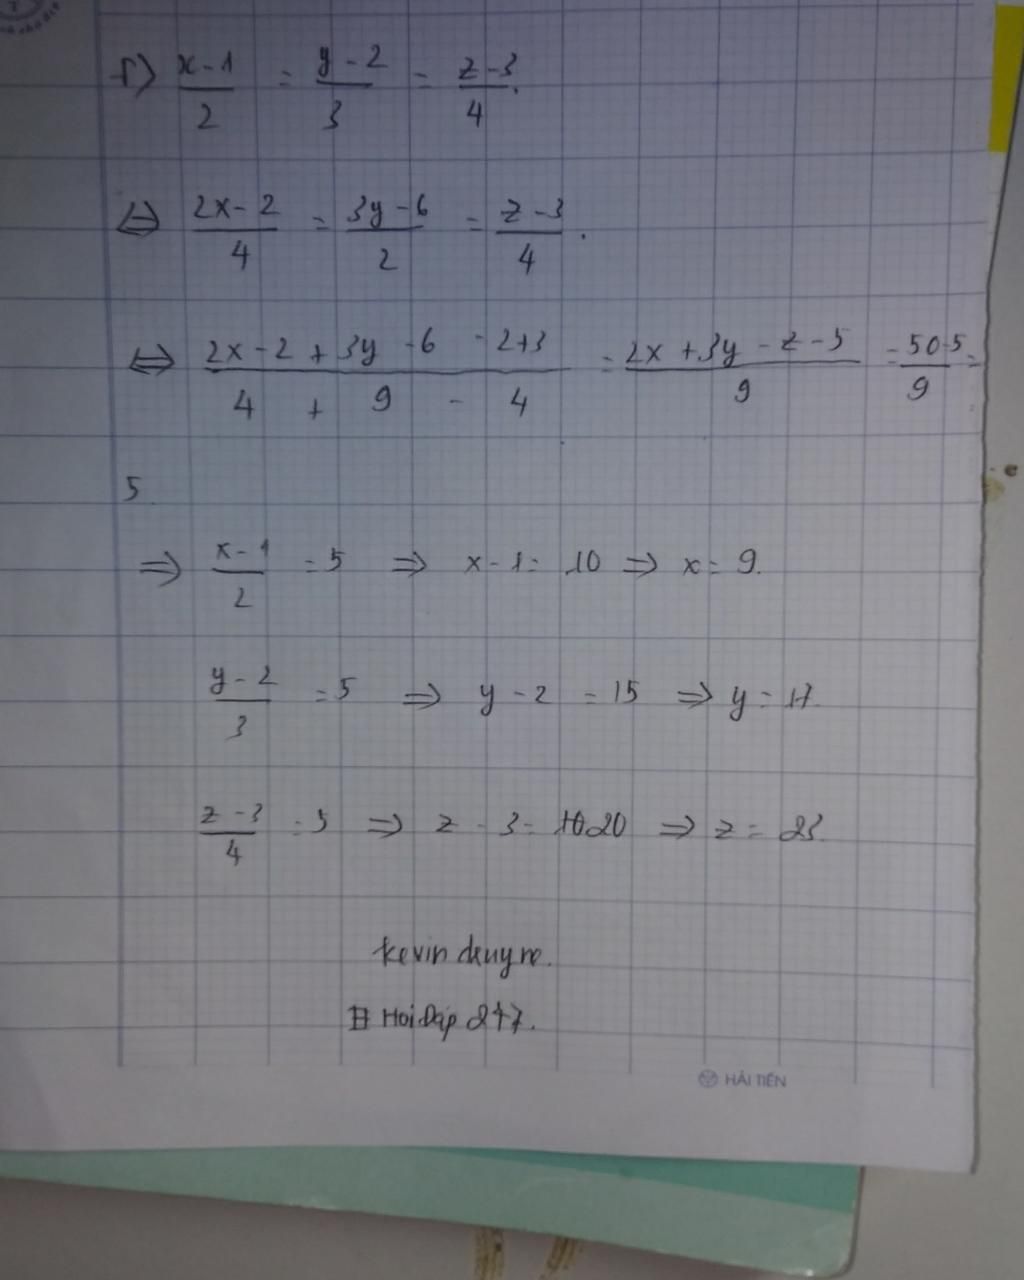 f) x-1/2 = y-2/3 = z-3/4.
⇔ 2x-2/4 = 3y-6/2 = z-3/4.
⇔ 2x-2+3y-6-2+3/4+9-4 = 2x+3y-z-5/9 = 50-5/9 =
5.
⇒ x-1/2 = 5 ⇒ x-1 = 10 ⇒ x = 9.
y-2/3 = 5 ⇒ y-2 = 15 ⇒ y = 17.
z-3/4 = 5 ⇒ z-3 = 20 ⇒ z = 23.
kevin
HoiDap 247.
HẢI TIẾN